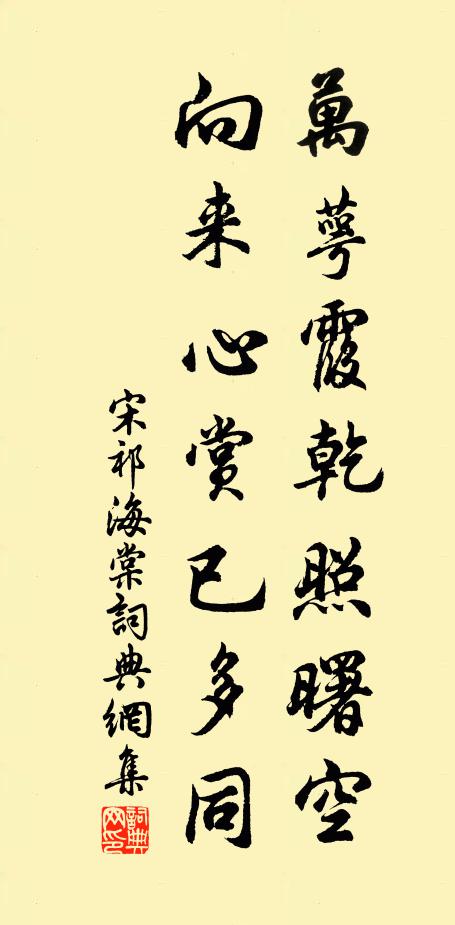 萬萼霞乾照曙空
向来心賞已多同
宋祁海棠詞典網集
詞典網印